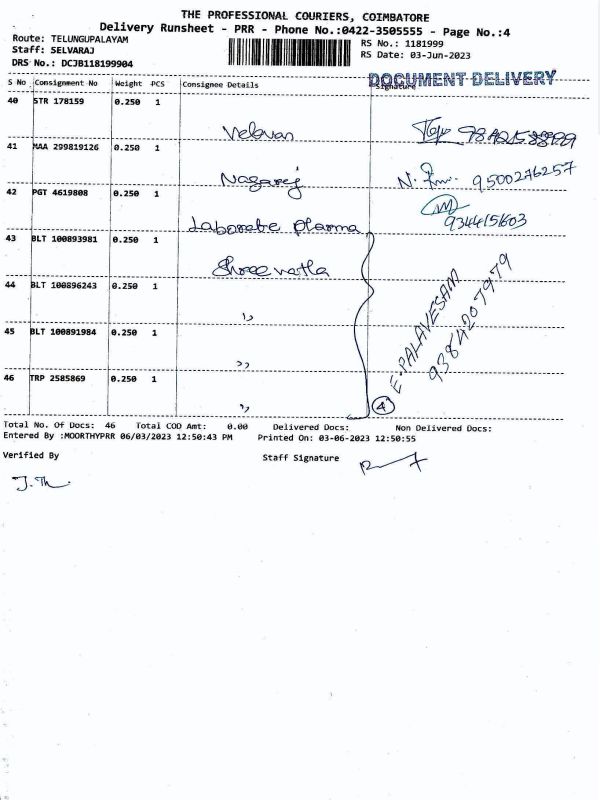 THE PROFESSIONAL COURIERS, COIMBATORE
Delivery Runsheet - PRR - Phone No.:0422-3505555 - Page No.:4
Route: TELUNGUPALAYAM
Staff: SELVARAJ
DRS No.: DCJB118199904
RS No.: 1181999
RS Date: 03-Jun-2023
DOCUMENT DELIVERY
S No Consignment No Weight PCS Consignee Details Signature
40 STR 178159 0.250 1
Velavan
41 MAA 299819126 0.250 1
Nagaraj N. 9500276257
42 PGT 4619808 0.250 1
Laborate pharma 9344151603
43 BLT 100893981 0.250 1
Shree vatla
44 BLT 100896243 0.250 1
"
45 BLT 100891984 0.250 1
"
46 TRP 2585869 0.250 1
"
4
E. PALAVESAM
9384207979
Total No. Of Docs: 46 Total COD Amt: 0.00 Delivered Docs: Non Delivered Docs:
Entered By :MOORTHYPRR 06/03/2023 12:50:43 PM Printed On: 03-06-2023 12:50:55
Verified By Staff Signature
J. Th